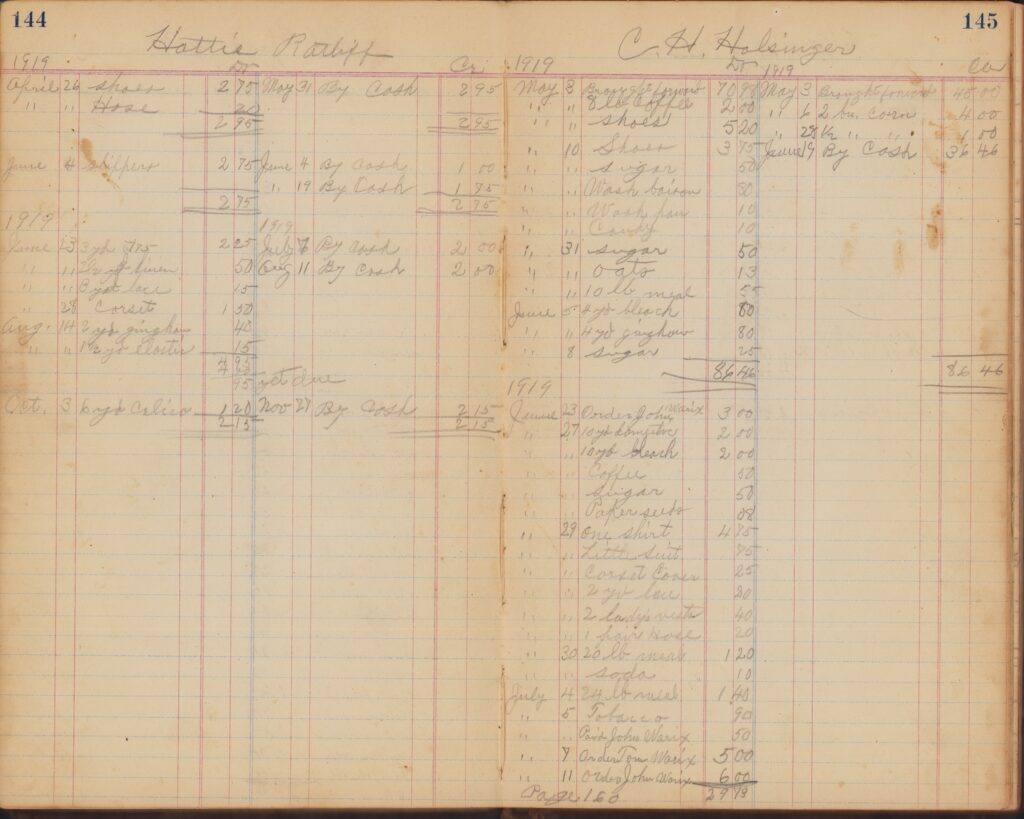 144
Hattie Ratliff
1919
Dr
Cr
April 26 Shoes 2 75 May 31 By Cash 2 95
" " Hose 20
2 95 2 95
June 4 Slippers 2 75 June 4 By Cash 1 00
" 19 By Cash 1 75
2 75 2 75
1919
1919
June 23 3 yd 2 25 July 7 By Cash 2 00
" " linen 50 Aug 11 By Cash 2 00
" " 3 yd lace 15
" 28 Corset 1 50
Aug. 14 2 yd gingham 40
" " 1 1/2 yd elastic 15
4 95
95 yet due
Oct. 3 6 yd Calico 1 20 Nov 27 By Cash 2 15
2 15 2 15
145
C. H. Holsinger
1919
Dr
1919
Cr
May 3 Brought forward 70 98 May 3 Brought forward 45 00
" " 8 lb Coffee 2 00 " 6 2 bu. Corn 4 00
" " Shoes 5 20 " 28 1/2 " " 1 00
" 10 Shoes 3 75 June 19 By Cash 36 46
" " Sugar 50
" " Wash basion 80
" " Wash pan 10
" " Candy 10
" 31 Sugar 50
" " Oats 13
" " 10 lb meal 55
June 5 4 yd bleach 80
" " 4 yd gingham 80
" 8 Sugar 25
86 46 86 46
1919
June 23 Order John Warix 3 00
" 27 10 yd domestic 2 00
" " 10 yd bleach 2 00
" " Coffee 50
" " Sugar 50
" " Paper seeds 08
" 29 One shirt 4 75
" " Little Suit 75
" " Corset Cover 25
" " 2 yd lace 20
" " 2 ladys vests 40
" " 1 pair Hose 20
" 30 20 lb meal 1 20
" " Soda 10
July 4 24 lb meal 1 40
" 5 Tobacco 90
" " Paid John Warix 50
" 7 Order Tom Warix 5 00
" 11 Order John Warix 6 00
Page 160 29 73